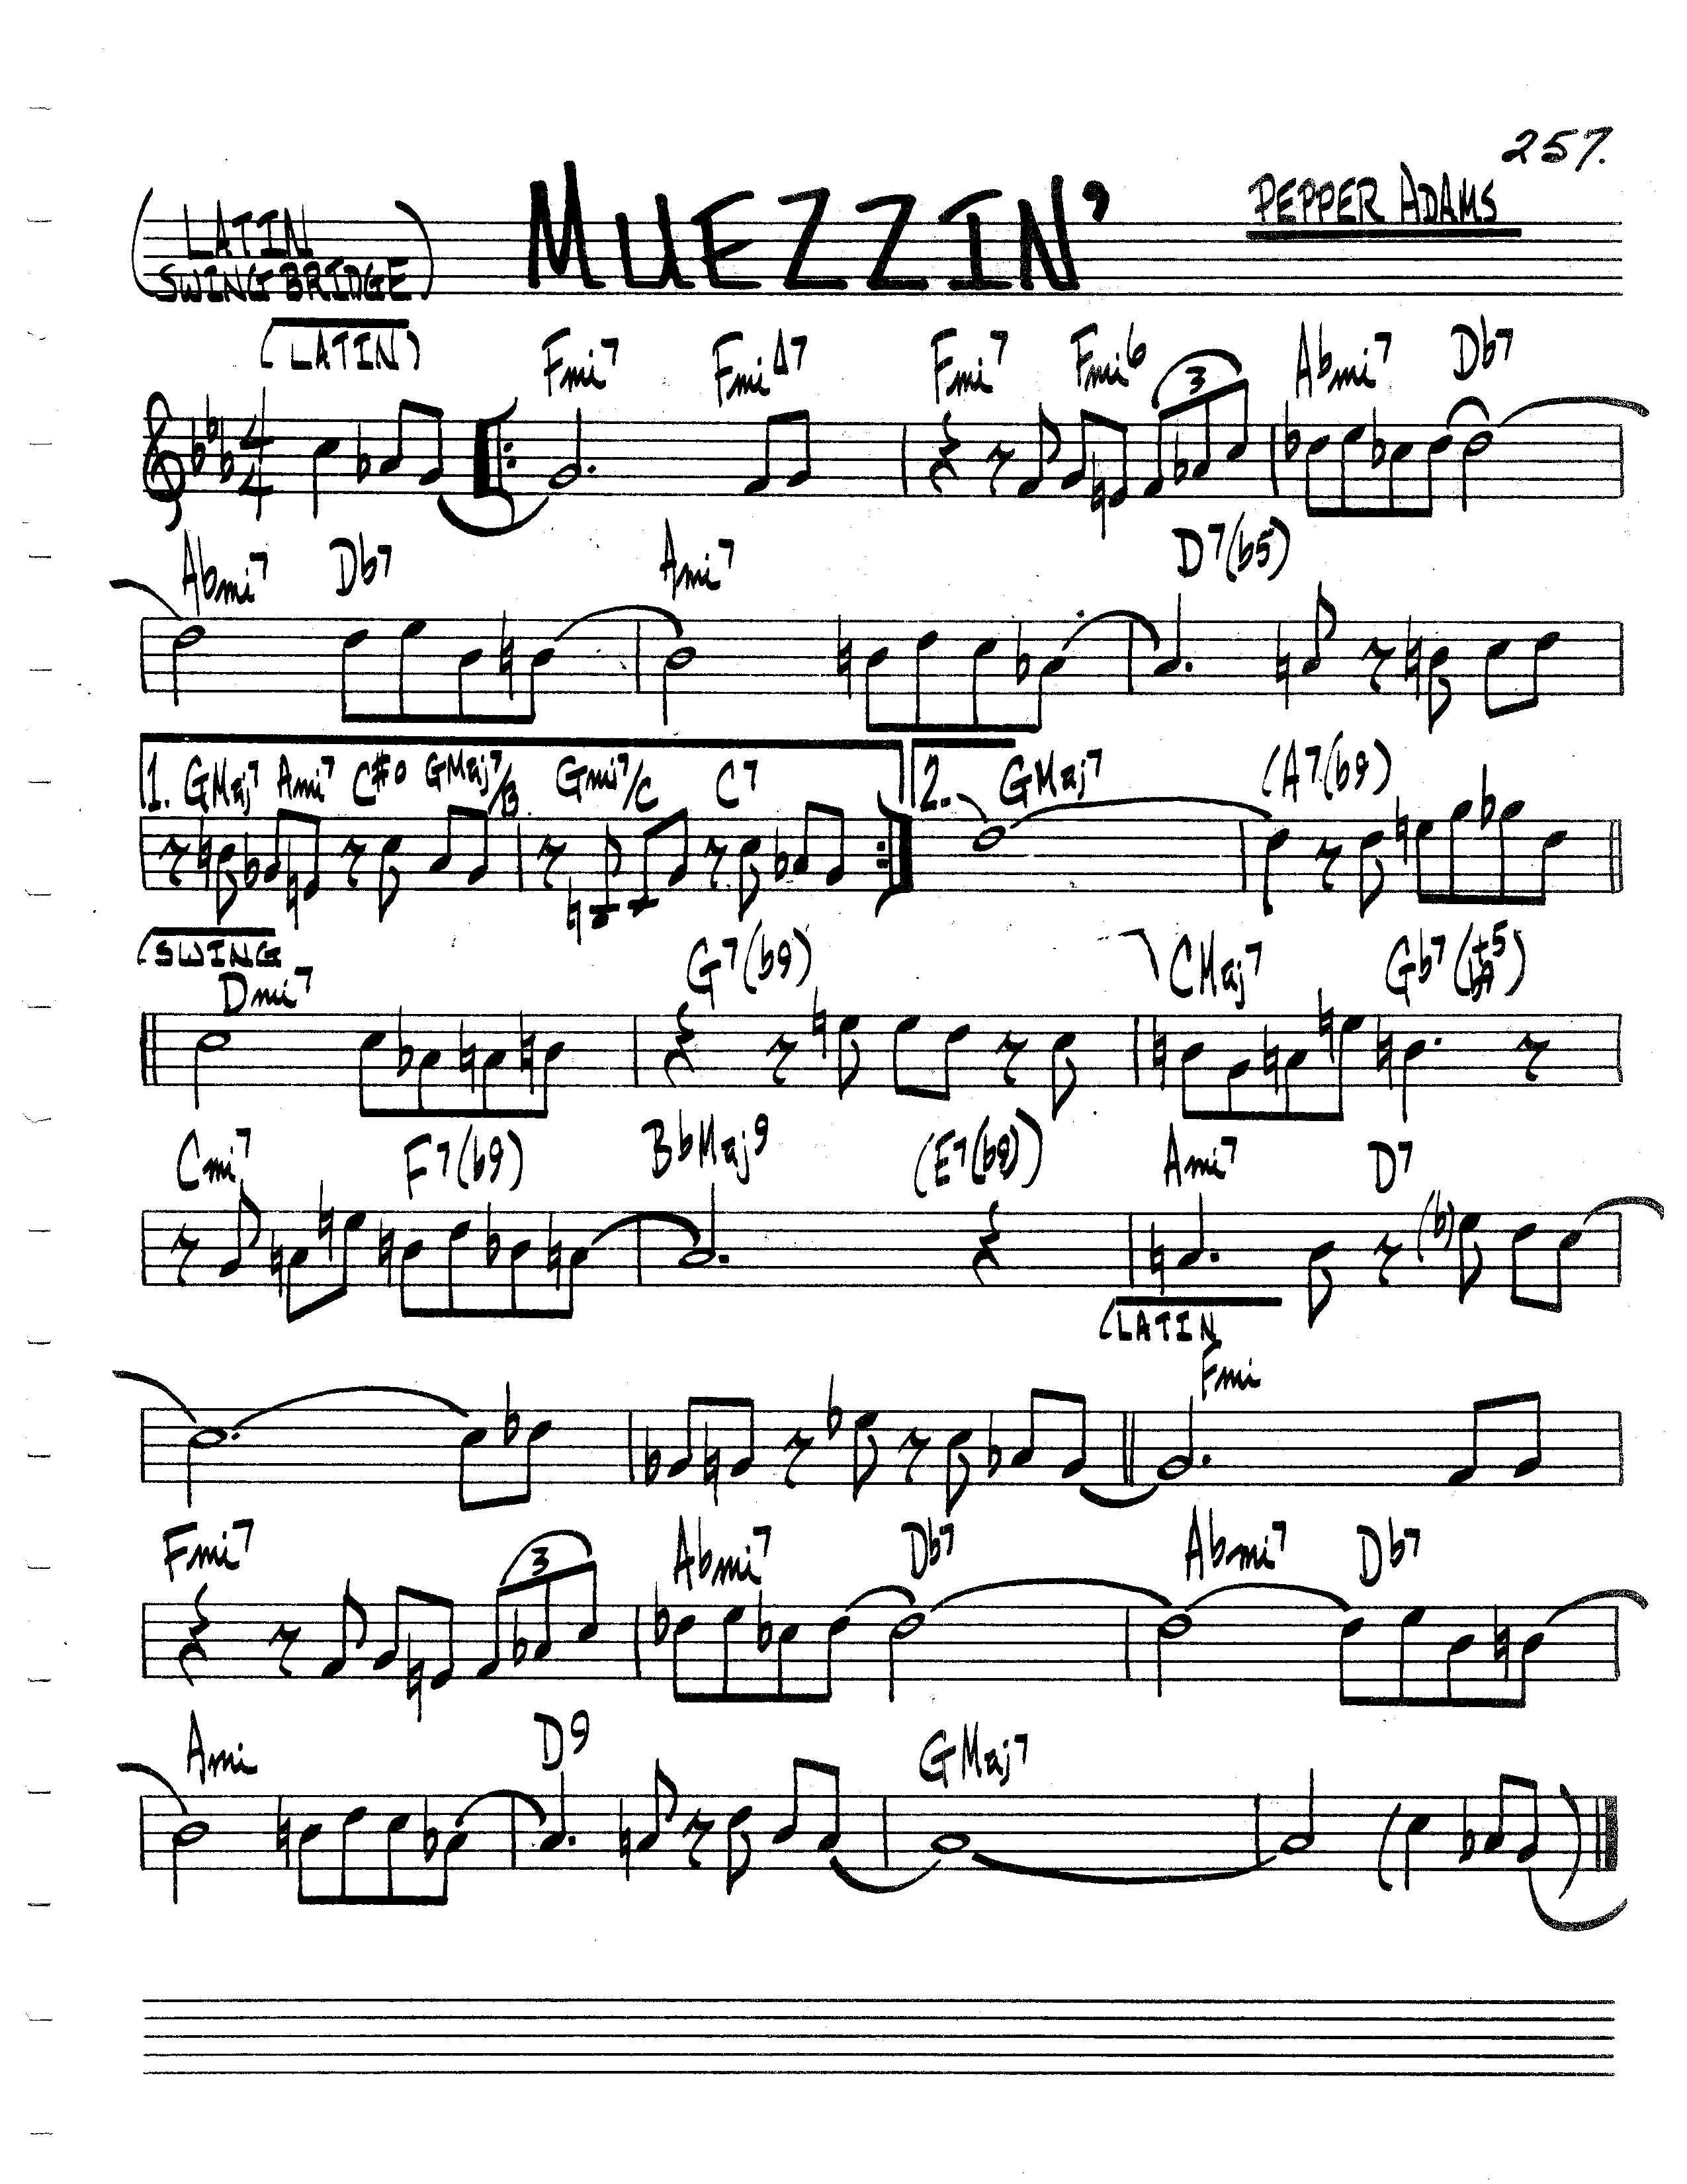 257.
(LATIN SWING BRIDGE) MUEZZIN' PEPPER ADAMS
(LATIN) Fmi7 FmiΔ7 Fmi7 Fmi6 3 Abmi7 Db7
4 4
Abmi7 Db7 Ami7 D7(b5)
1. GMaj7 Ami7 C#o GMaj7/B Gmi7/C C7 2. GMaj7 (A7(b9)
(SWING
Dmi7 G7(b9) CMaj7 Gb7
Cmi7 F7(b9) BbMaj9 (E7(b9)) Ami7 D7
(LATIN
Fmi
Fmi7 3 Abmi7 Db7 Abmi7 Db7
Ami D9 GMaj7